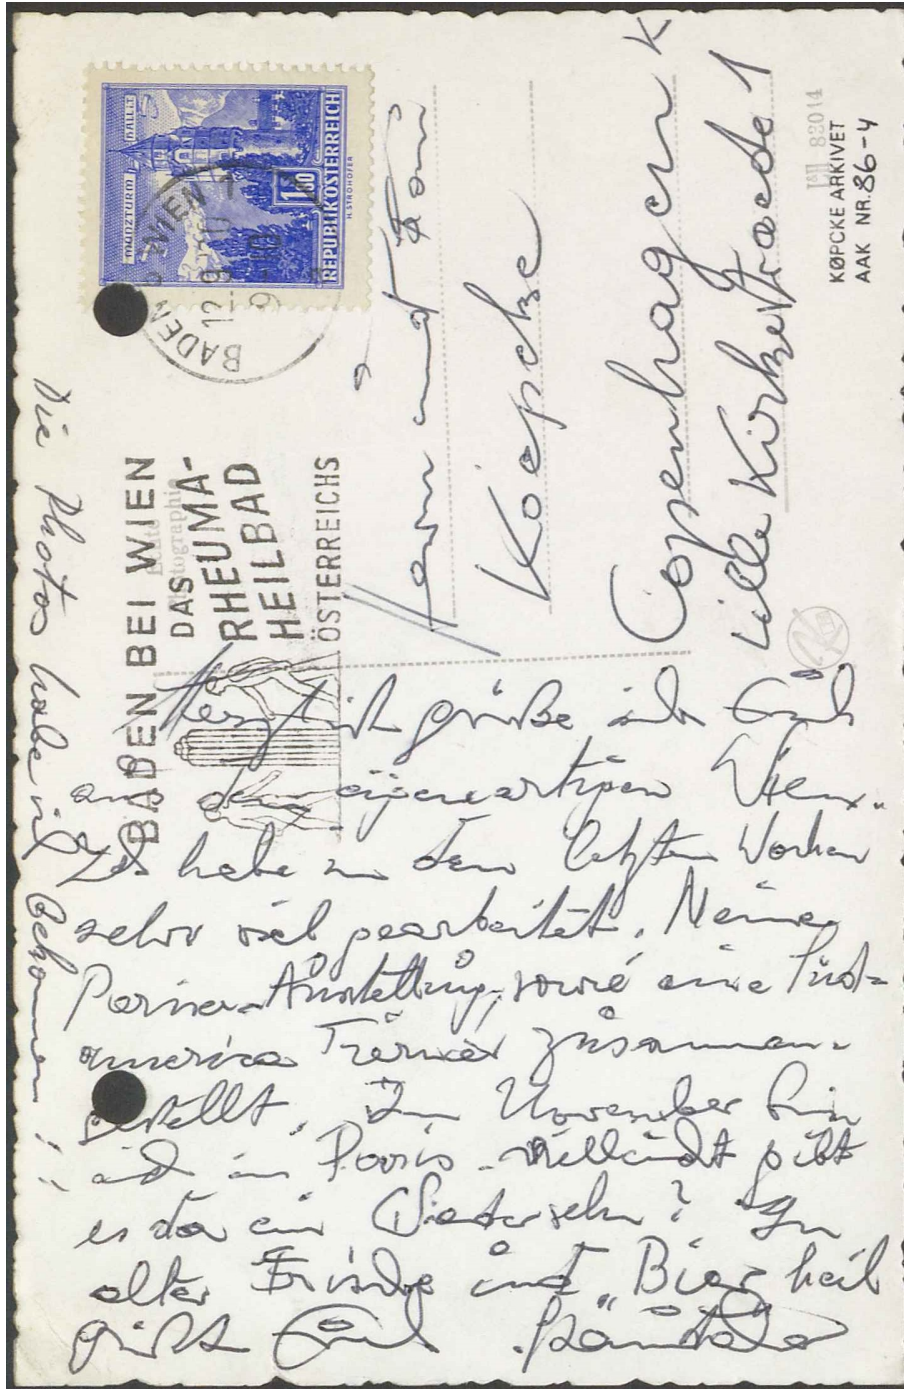 MÜNZTURM HALL i T
1.80
REPUBLIK ÖSTERREICH
H. STROHOFER
BADEN B. WIEN 1
12.9.
BADEN BEI WIEN
DAS
RHEUMA-
HEILBAD
ÖSTERREICHS
Echte
Photographie
Herrn und Frau
Koepcke
Copenhagen K
Lille Kirkestraede 1
I&M 82014
KØPCKE ARKIVET
AAK NR. 86-4
Herzlich grüße ich Euch
aus dem eigenartigen Wien.
Ich habe in den letzten Wochen
sehr viel gearbeitet. Meine
Pariser-Ausstellung, sowie eine Süd-
america zusammen-
gestellt. Im November bin
ich in Paris - vielleicht gibt
es da ein Wiedersehn? In
alter Frische und "Bier heil"
grüßt Euch
Die Photos habe ich bekommen!!